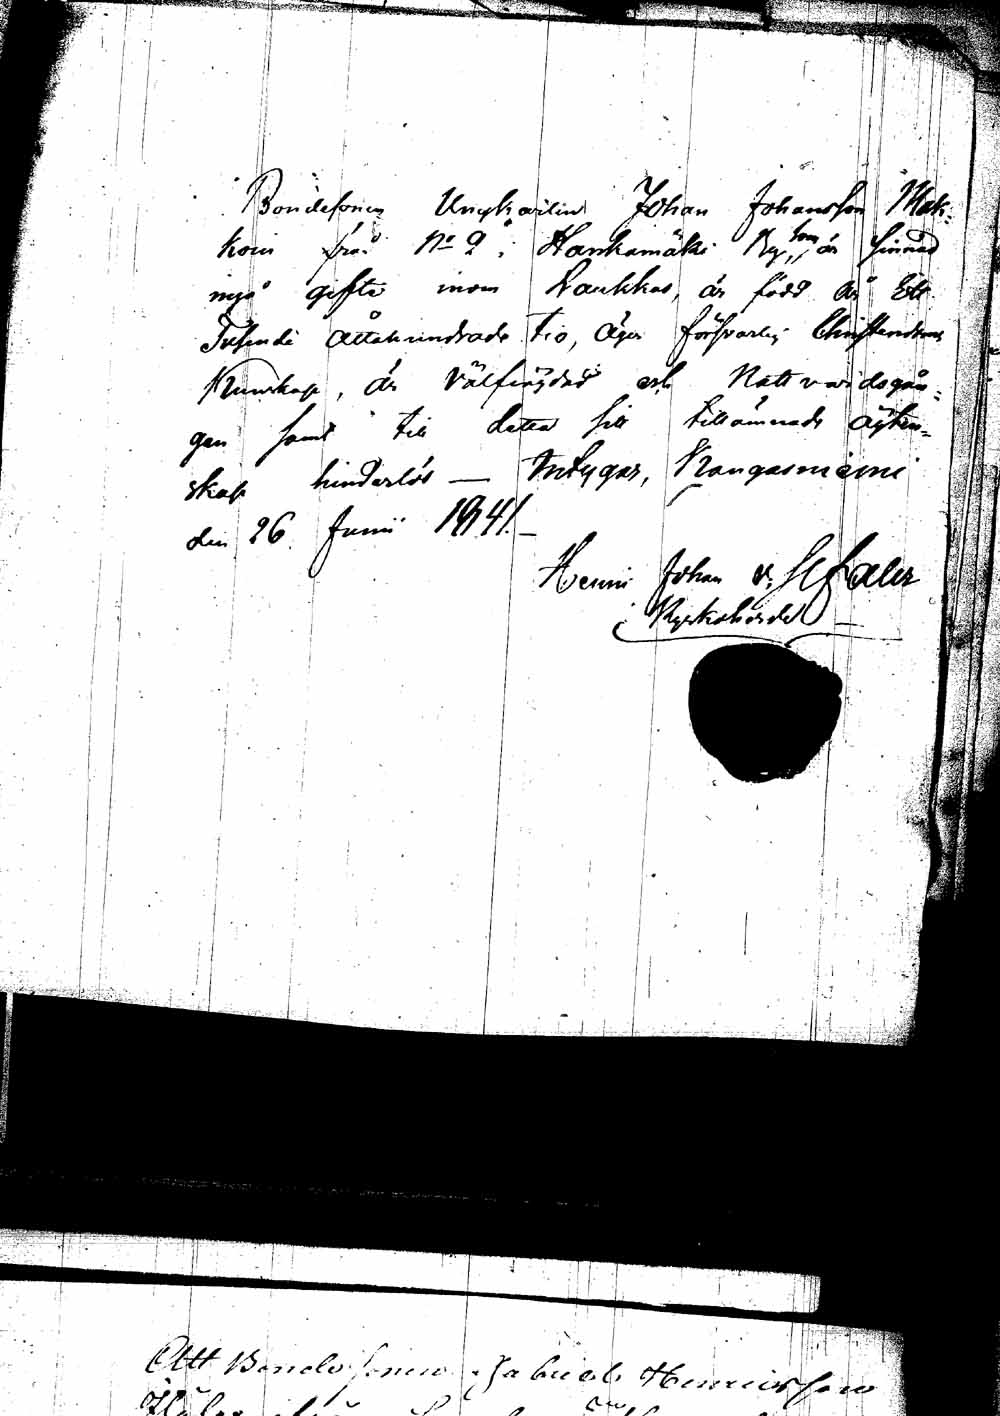 Bondesonen Ungkarlen Johan Johansson Mak-
koin från No 2 i Hankamäki By, som är sinnad
ingå gifte inom Laukkas, är född år Ett
Tusende Åttahundrade tio, äger försvarlig Christendoms
Kunskap, är välfrägdad och Nattvardsgån-
gen samt till detta sitt tillämnade äkten-
skap hinderlös — Intygar, Kangasniemi
den 26 Junii 1841. —
Henric Johan
Kyrkoherde —
Att Bondesonen Gabriel Henricsson